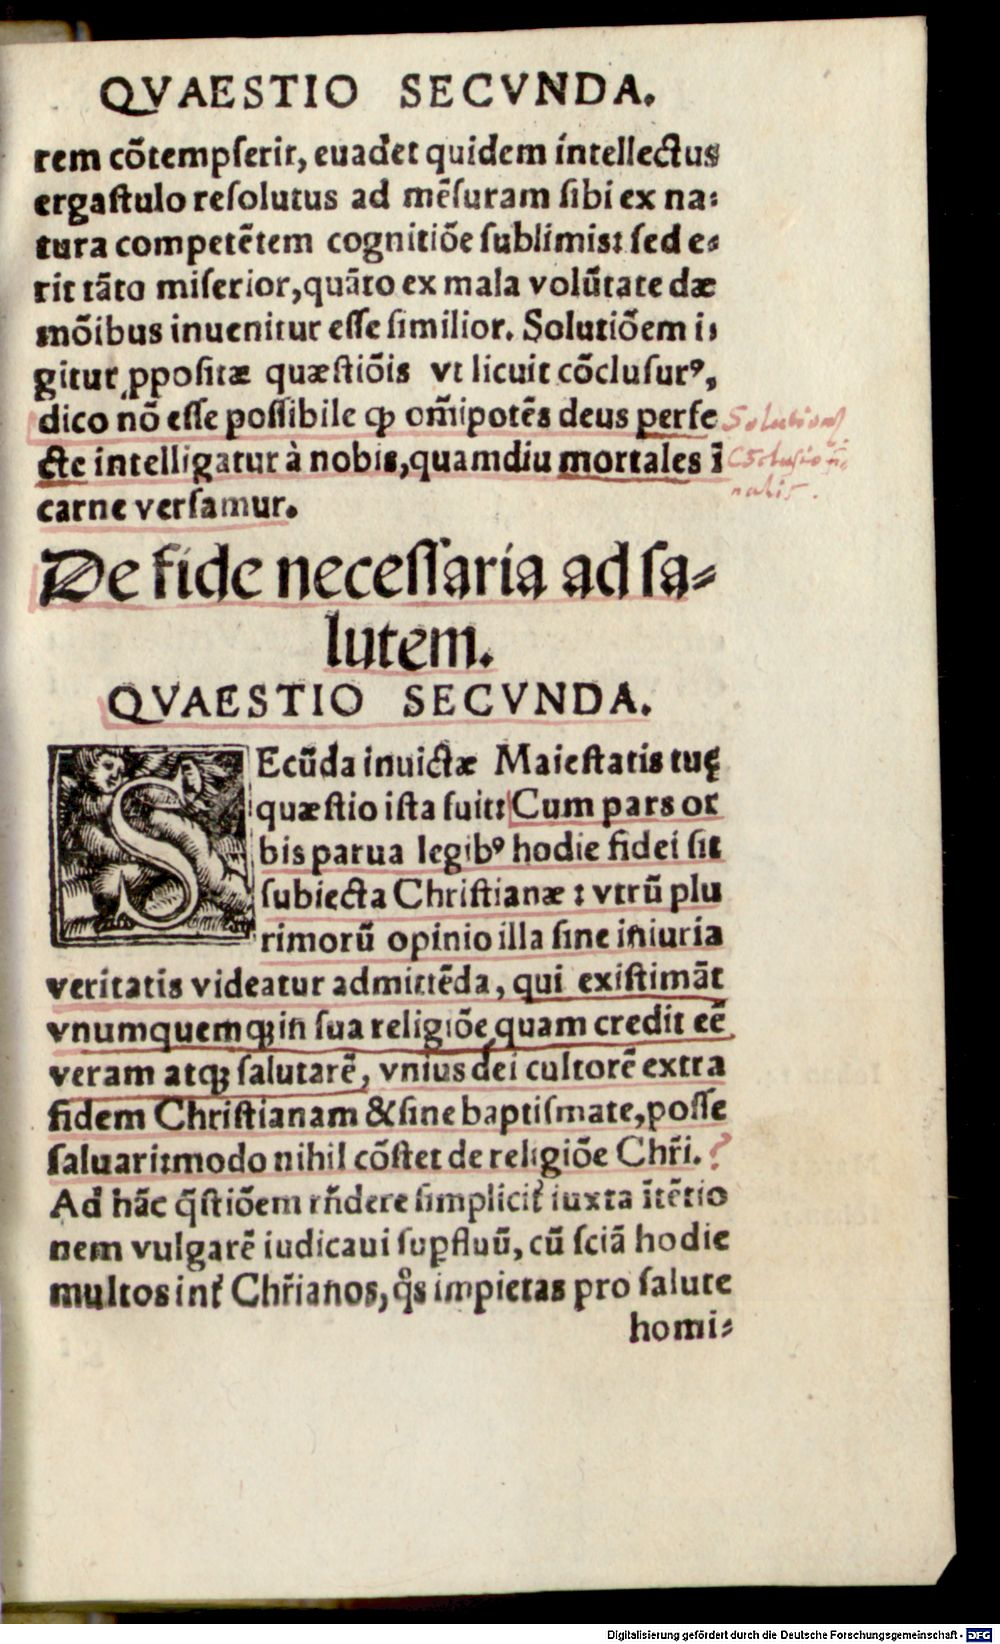 QVAESTIO SECVNDA.
rem cõtempserit, euadet quidem intellectus
ergastulo resolutus ad mẽsuram sibi ex na⸗
tura competẽtem cognitiõe sublimis: sed e⸗
rit tãto miserior, quãto ex mala volũtate dæ
mõibus inuenitur esse similior. Solutiõem i⸗
gitur ꝓpositæ quæstiõis vt licuit cõclusurꝰ,
dico nõ esse possibile ꝙ om̃ipotẽs deus perfe
cte intelligatur à nobis, quamdiu mortales ĩ
carne versamur.
Solutionis
Cõclusio fi⸗
nalis.
De fide necessaria ad sa⸗
lutem.
QVAESTIO SECVNDA.
SEcũda inuictæ Maiestatis tuę
quæstio ista fuit: Cum pars or
bis parua legibꝰ hodie fidei sit
subiecta Christianæ: vtrũ plu
rimorũ opinio illa sine iniuria
veritatis videatur admittẽda, qui existimãt
vnumquemqꝫ in sua religiõe, quam credit eẽ
veram atqꝫ salutarẽ, vnius dei cultorẽ extra
fidem Christianam & sine baptismate, posse
saluari: modo nihil cõstet de religiõe Chr̃i.?
Ad hãc q̃stiõem rñdere simplicit̃ iuxta ĩtẽtio
nem vulgarẽ iudicaui suꝑfluũ, cũ sciã hodie
multos int̃ Chr̃ianos, q̊s impietas pro salute
homi⸗
Digitalisierung gefördert durch die Deutsche Forschungsgemeinschaft - DFG